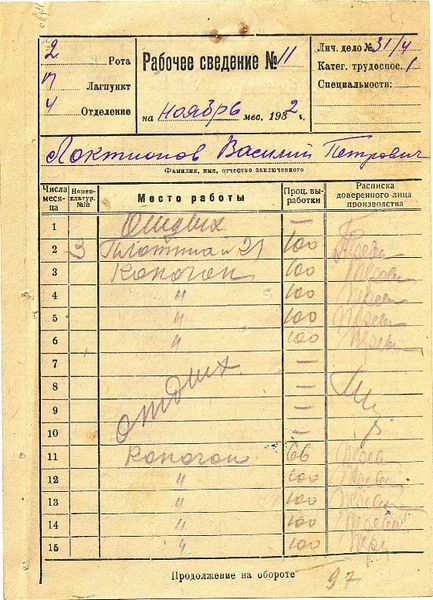 2 Рота
Лагпункт
4 Отделение
Рабочее сведение № 11
на ноябрь мес. 1932 г.
Лич. дело № 31/4
Катег. трудоспос. 1
Специальность:
Локтионов Василий Петрович
Фамилия, имя, отчество заключенного
Числа месяца Номенклатур. №№ Место работы Проц. выработки Расписка доверенного лица производства
1 Отдых —
2 3 Плотина № 21 100
3 Коногон 100
4 " 100
5 " 100
6 " 100
7 —
8 отдых —
9 —
10 —
11 Коногон 66
12 " 100
13 " 100
14 " 100
15 " 100
Продолжение на обороте
97